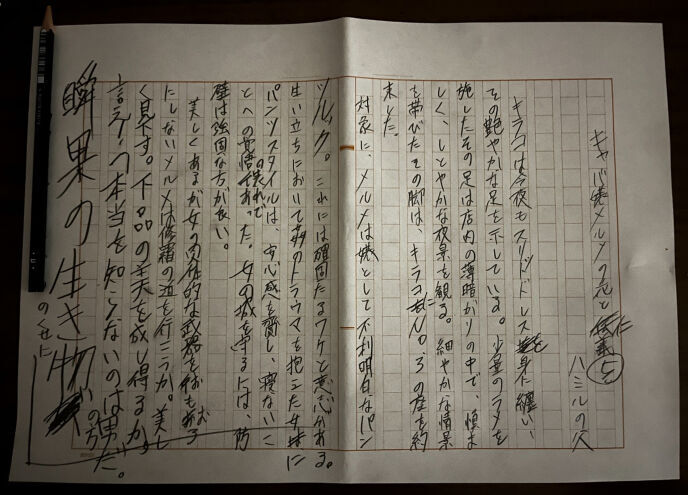 キャバ嬢メルメの花と仁義
ハミルの父
キラコは今夜もスリットドレスを身に纏い、
その艶やかな足を示している。少量のラメを
施したその足は店内の薄暗がりの中で、慎ま
しく、しとやかな夜景を観る。細やかな情景
を帯びたその脚は、キラコにNo.3の座を約
束した。
対象に、メルメは嬢として不利明白なパン
ツルック。これには頑固たるワケと意志がある。
生い立ちにおいて多くのトラウマを抱えた女は
パンツスタイルは、安心感を齎し、寝ないこ
とへの覚悟であった。女の城を守るには、防
壁は強固な方が良い。
美しくあるが女の肉体的な武器を
にしないメルメは修羅の道を行こうか。美し
く見す。下品の美を成し得るか。
言えつ本当を知らないのは男の方だ。
瞬果の生き物
のくせに